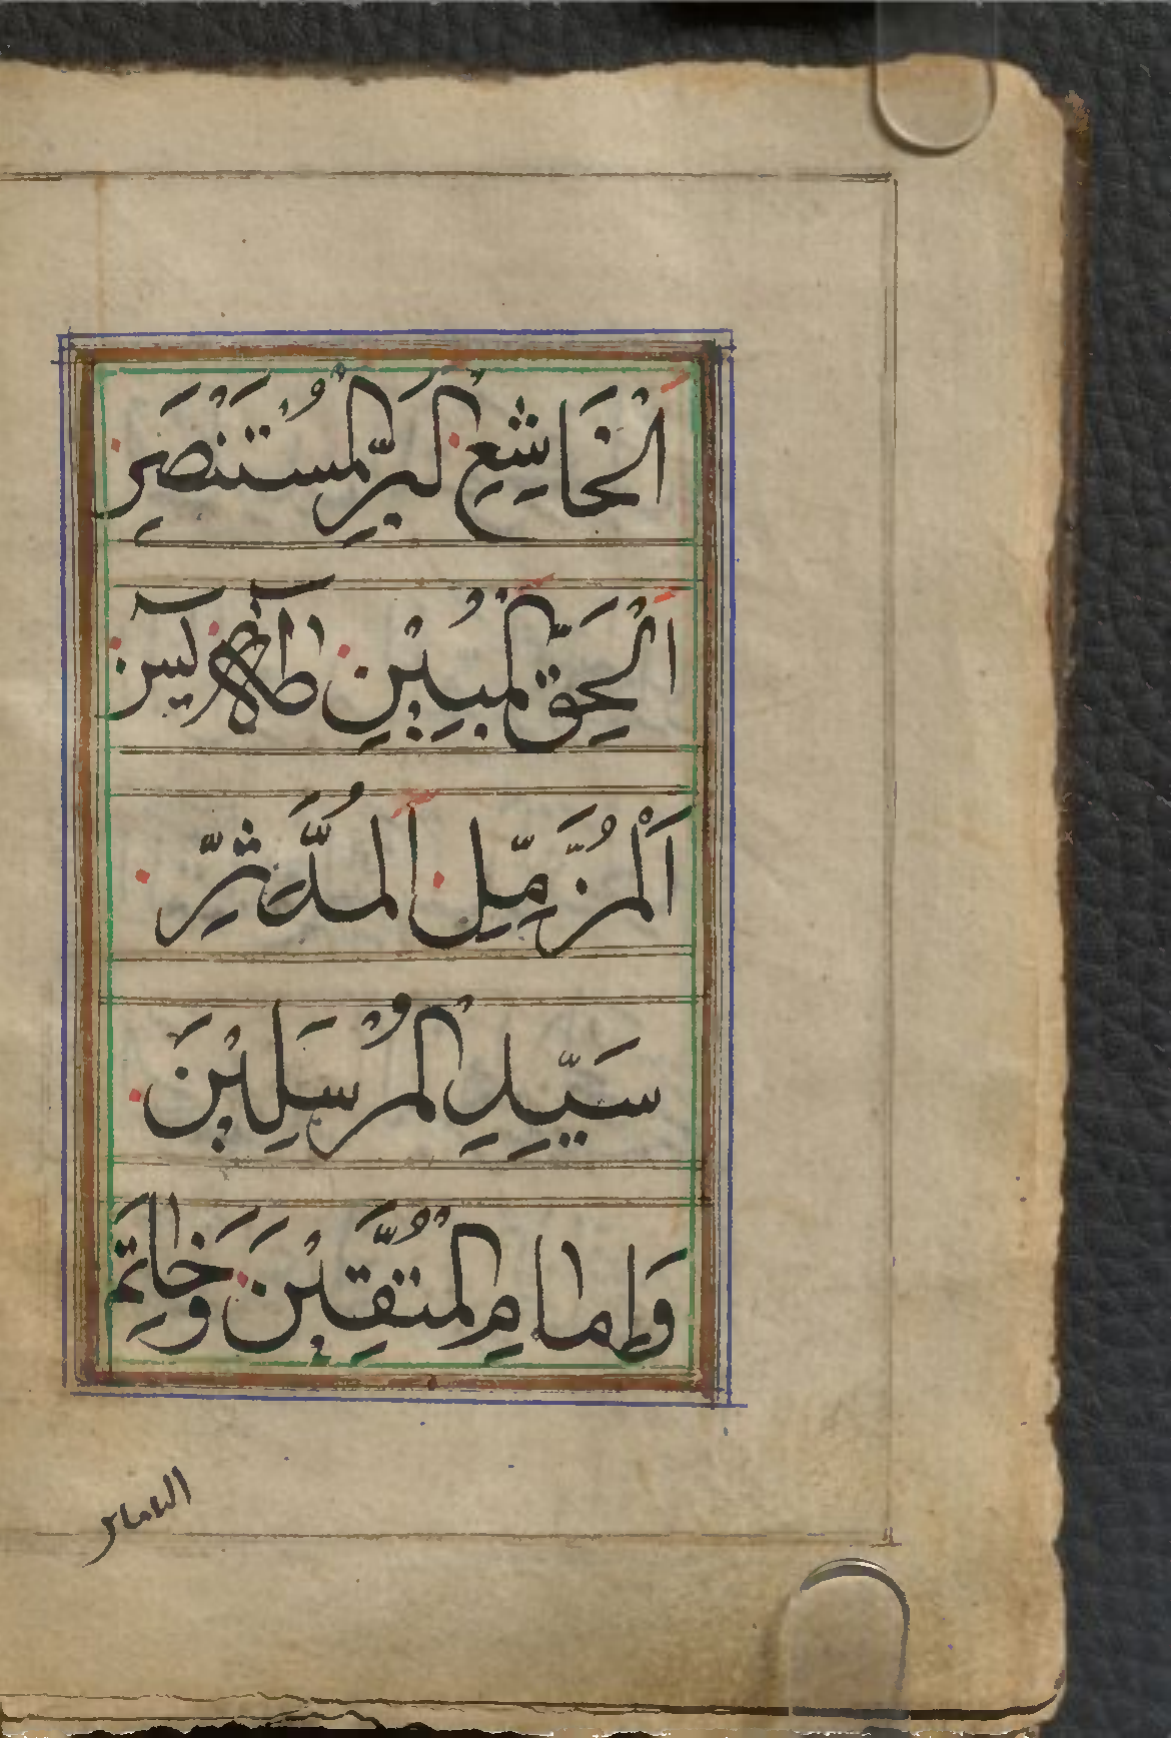 اَلْخَاشِعِ الْبَرِّ الْمُسْتَنْصَرِ
اَلْحَقِّ الْمُبِيْنِ طٰهٰ يٰسٓ
اَلْمُزَّمِّلِ اَلْمُدَّثِّرِ
سَيِّدِ الْمُرْسَلِيْنَ
وَاِمَامِ الْمُتَّقِيْنَ وَخَاتِمِ